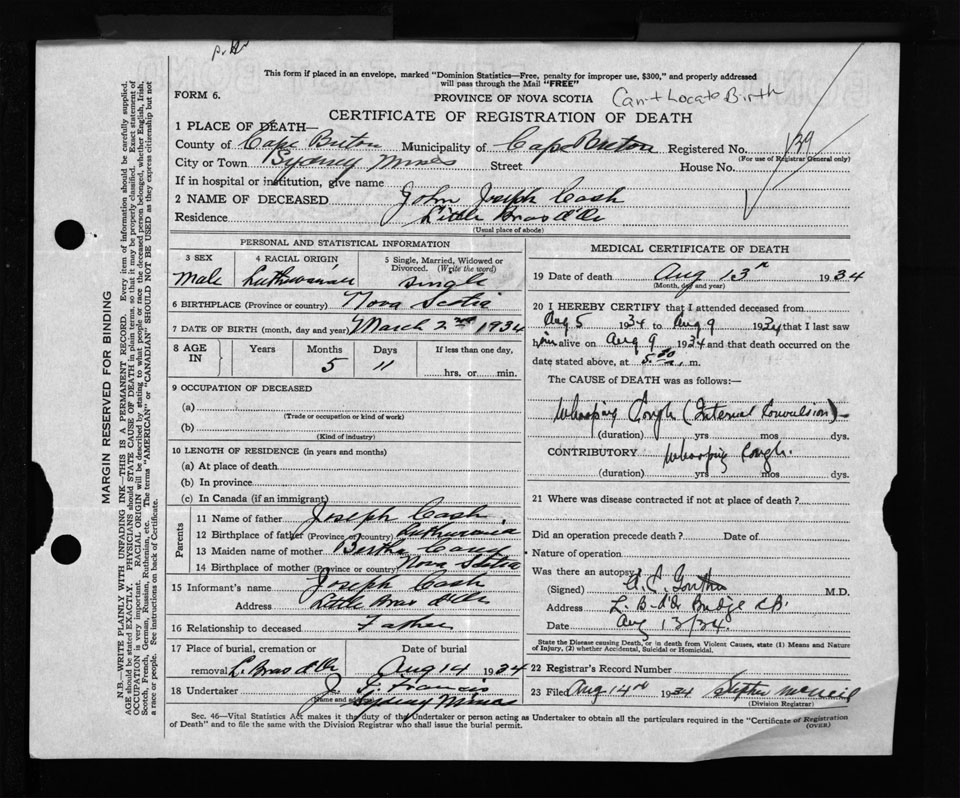 This form if placed in an envelope, marked "Dominion Statistics—Free, penalty for improper use, $300," and properly addressed
will pass through the Mail "FREE"
FORM 6.
PROVINCE OF NOVA SCOTIA
Can't Locate Birth
CERTIFICATE OF REGISTRATION OF DEATH
1 PLACE OF DEATH—
County of Cape Breton Municipality of Cape Breton Registered No. 139
(For use of Registrar General only)
City or Town Sydney Mines Street House No.
If in hospital or institution, give name
2 NAME OF DECEASED John Joseph Cash
Residence Little Bras d'Or
(Usual place of abode)
PERSONAL AND STATISTICAL INFORMATION
3 SEX Male
4 RACIAL ORIGIN
5 Single, Married, Widowed or Divorced. (Write the word) Single
6 BIRTHPLACE (Province or country) Nova Scotia
7 DATE OF BIRTH (month, day and year) March 2nd 1934
8 AGE IN Years Months 5 Days 11 If less than one day, hrs. or min.
9 OCCUPATION OF DECEASED
(a)
(Trade or occupation or kind of work)
(b)
(Kind of industry)
10 LENGTH OF RESIDENCE (in years and months)
(a) At place of death
(b) In province
(c) In Canada (if an immigrant)
Parents
11 Name of father Joseph Cash
12 Birthplace of father (Province or country) Luthuvania
13 Maiden name of mother Bertha
14 Birthplace of mother (Province or country) Nova Scotia
15 Informant's name Joseph Cash
Address Little Bras d'Or
16 Relationship to deceased Father
17 Place of burial, cremation or removal L. Bras d'Or
Date of burial Aug 14 1934
18 Undertaker J. F. Francis
(Name and
Sydney Mines
MEDICAL CERTIFICATE OF DEATH
19 Date of death Aug 13th 1934
(Month, day and year)
20 I HEREBY CERTIFY that I attended deceased from
Aug 5 1934 to Aug 9 1934 that I last saw
him alive on Aug 9 1934 and that death occurred on the
date stated above, at 5.30 m.
The CAUSE of DEATH was as follows:—
Whooping Cough (Internal Convulsion)
(duration) yrs mos dys.
CONTRIBUTORY Whooping Cough.
(duration) yrs mos dys.
21 Where was disease contracted if not at place of death?
Did an operation precede death? Date of
Nature of operation
Was there an autopsy
(Signed) M.D.
Address L. B. d'Or Bridge C.B.
Date Aug 13/34.
State the Disease causing Death, or in death from Violent Causes, state (1) Means and Nature
of Injury, (2) whether Accidental, Suicidal or Homicidal.
22 Registrar's Record Number
23 Filed Aug 14th 1934 Stephen McNeil
(Division Registrar)
Sec. 46—Vital Statistics Act makes it the duty of the Undertaker or person acting as Undertaker to obtain all the particulars required in the "Certificate of Registration
of Death" and to file the same with the Division Registrar who shall issue the burial permit.
(OVER)
MARGIN RESERVED FOR BINDING
N.B.—WRITE PLAINLY WITH UNFADING INK—THIS IS A PERMANENT RECORD. Every item of information should be carefully supplied.
AGE should be stated EXACTLY. PHYSICIANS should STATE CAUSE OF DEATH in plain terms, so that it may be properly classified. Exact statement of
OCCUPATION is very important. RACIAL ORIGIN will be described by stating to what people or race the deceased person belonged, whether English, Irish,
Scotch, French, German, Russian, Ruthenian, etc. The terms "AMERICAN" or "CANADIAN" SHOULD NOT BE USED as they express citizenship but not
a race or people. See instructions on back of Certificate.